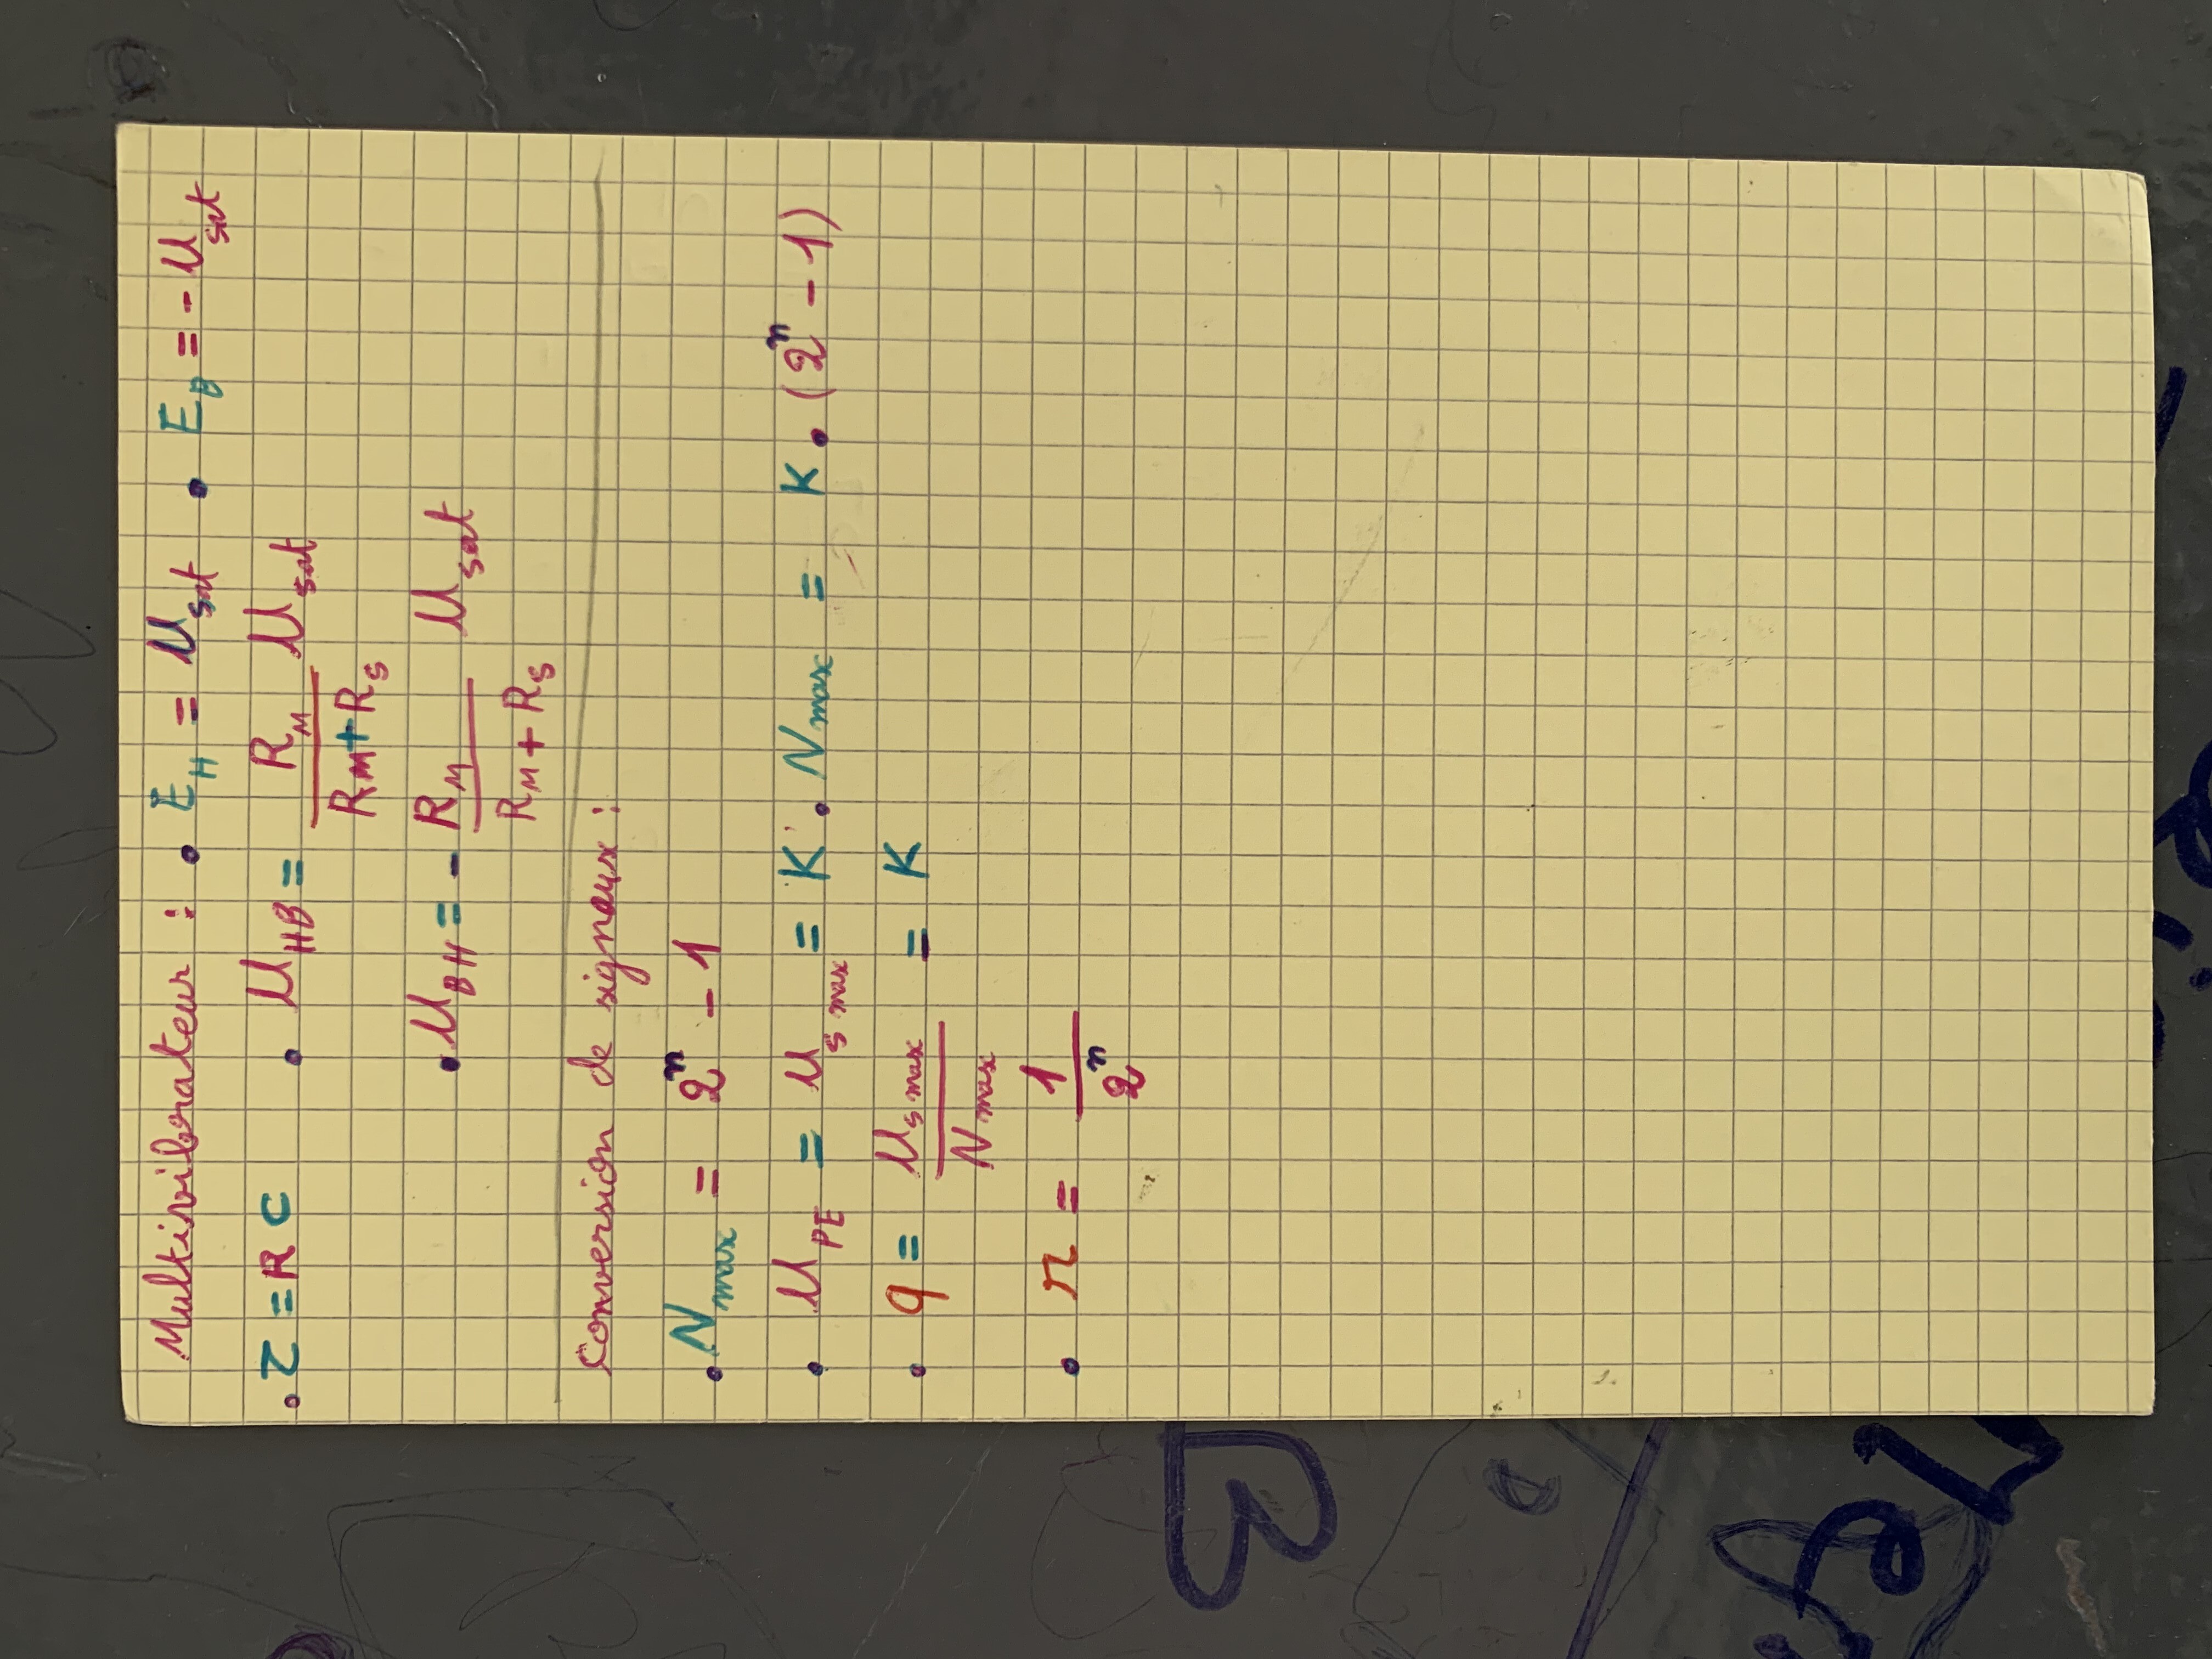 Multivibrateur : • E_H = U_sat • E_B = - U_sat
• τ = R C • U_HB = R_M / (R_M + R_S) U_sat
• U_BH = - R_M / (R_M + R_S) U_sat
Conversion de signaux :
• N_max = 2^n - 1
• U_PE = U_s max = K • N_max = K • (2^n - 1)
• q = U_s max / N_max = K
• r = 1 / 2^n